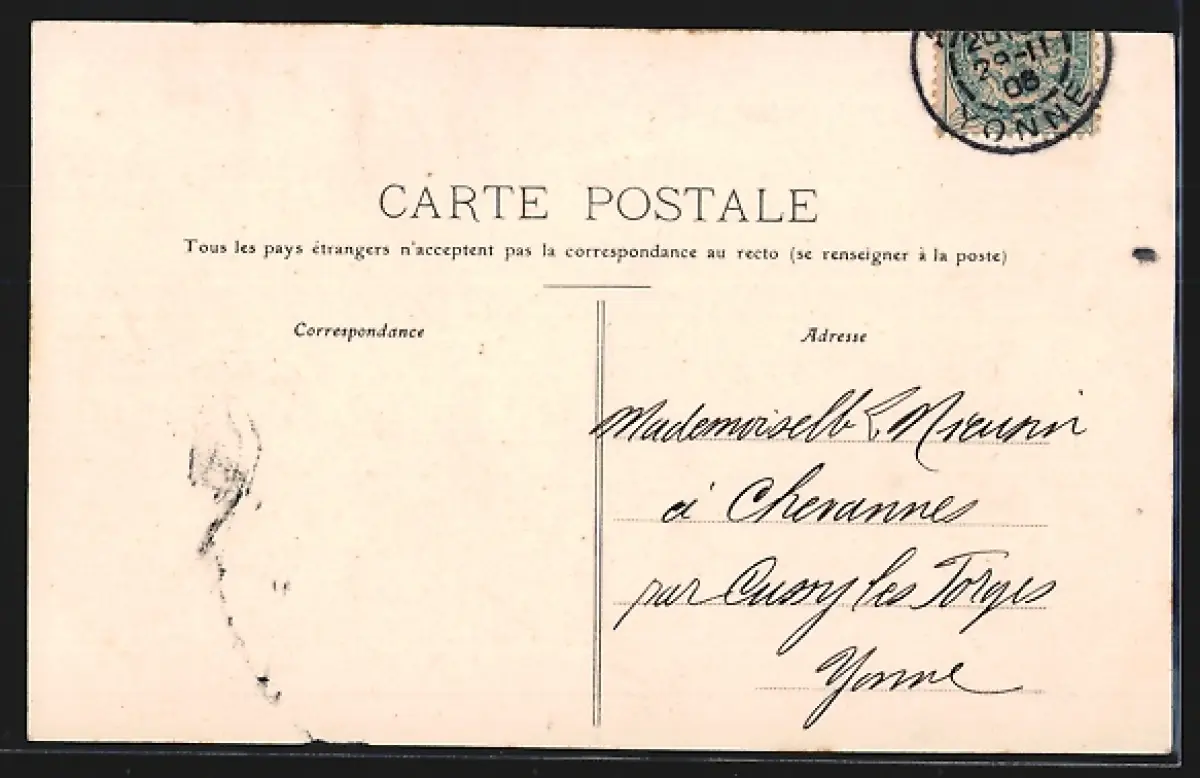 20
29-11
08
YONNE
CARTE POSTALE
Tous les pays étrangers n'acceptent pas la correspondance au recto (se renseigner à la poste)
Correspondance
Adresse
Mademoiselle L
à Chevannes
par Cussy les Forges
Yonne